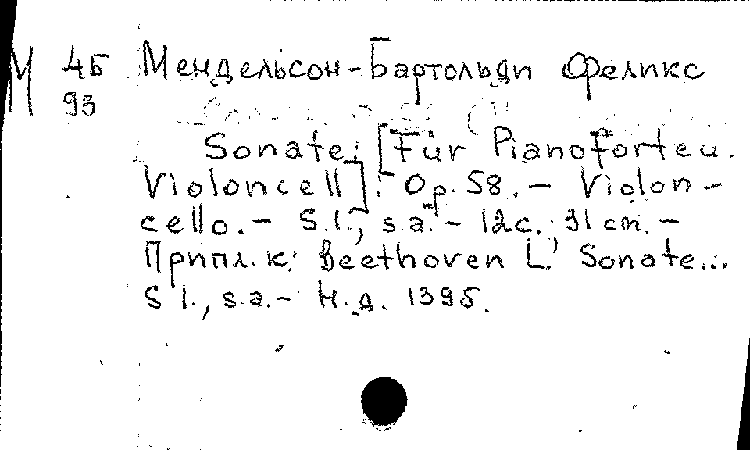 М 4Б Мендельсон-Бартольди Феликс
93
Sonate: [Für Pianoforte u.
Violoncell]. Op. 58. – Violon-
cello. – S.l., s.a. – 12 с. 31 cm. –
Припл. к: Beethoven L. Sonate...
S l., s.a. – Н.д. 1395.